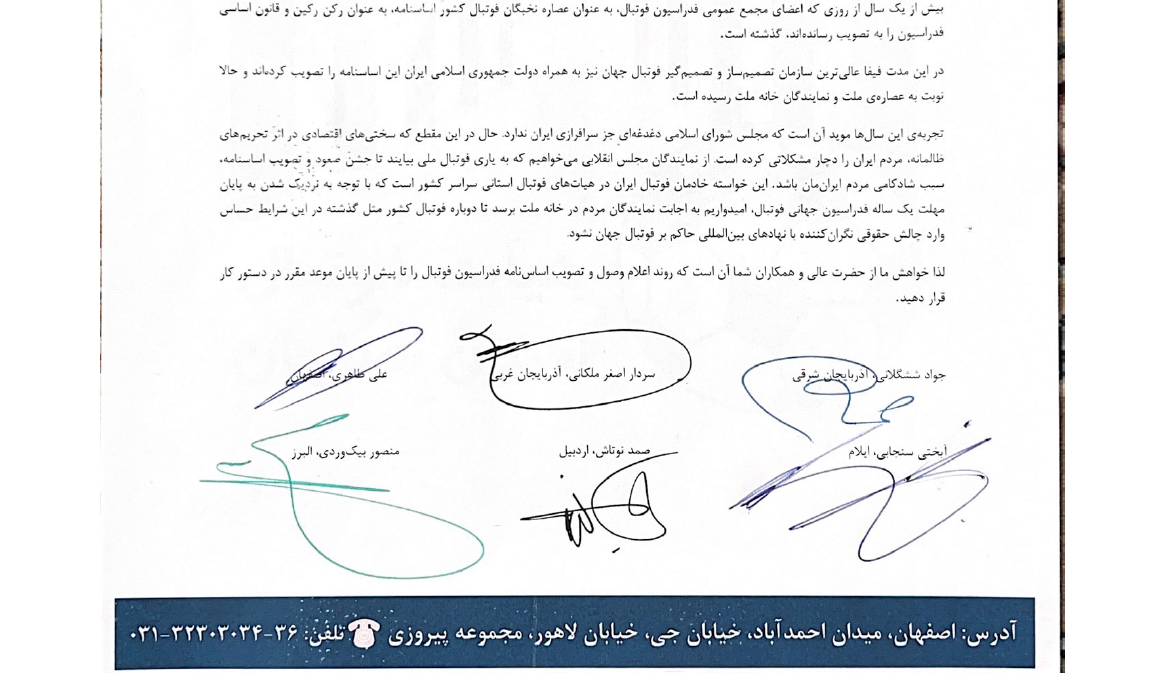 بیش از یک سال از روزی که اعضای مجمع عمومی فدراسیون فوتبال، به عنوان عصاره نخبگان فوتبال کشور اساسنامه، به عنوان رکن رکین و قانون اساسی
فدراسیون را به تصویب رسانده‌اند، گذشته است.
در این مدت فیفا عالی‌ترین سازمان تصمیم‌ساز و تصمیم‌گیر فوتبال جهان نیز به همراه دولت جمهوری اسلامی ایران این اساسنامه را تصویب کرده‌اند و حالا
نوبت به عصاره‌ی ملت و نمایندگان خانه ملت رسیده است.
تجربه‌ی این سال‌ها موید آن است که مجلس شورای اسلامی دغدغه‌ای جز سرافرازی ایران ندارد. حال در این مقطع که سختی‌های اقتصادی در اثر تحریم‌های
ظالمانه، مردم ایران را دچار مشکلاتی کرده است. از نمایندگان مجلس انقلابی می‌خواهیم که به یاری فوتبال ملی بیایند تا جشن صعود و تصویب اساسنامه،
سبب شادکامی مردم ایران‌مان باشد. این خواسته خادمان فوتبال ایران در هیات‌های فوتبال استانی سراسر کشور است که با توجه به نزدیک شدن به پایان
مهلت یک ساله فدراسیون جهانی فوتبال، امیدواریم به اجابت نمایندگان مردم در خانه ملت برسد تا دوباره فوتبال کشور مثل گذشته در این شرایط حساس
وارد چالش حقوقی نگران‌کننده با نهادهای بین‌المللی حاکم بر فوتبال جهان نشود.
لذا خواهش ما از حضرت عالی و همکاران شما آن است که روند اعلام وصول و تصویب اساس‌نامه فدراسیون فوتبال را تا پیش از پایان موعد مقرر در دستور کار
قرار دهید.
جواد ششگلانی، آذربایجان شرقی سردار اصغر ملکانی، آذربایجان غربی علی طاهری، اصفهان
آبختی سنجابی، ایلام صمد نوتاش، اردبیل منصور بیک‌وردی، البرز
آدرس: اصفهان، میدان احمدآباد، خیابان جی، خیابان لاهور، مجموعه پیروزی تلفن: ۳۶-۰۳۱-۳۲۳۰۳۰۳۴